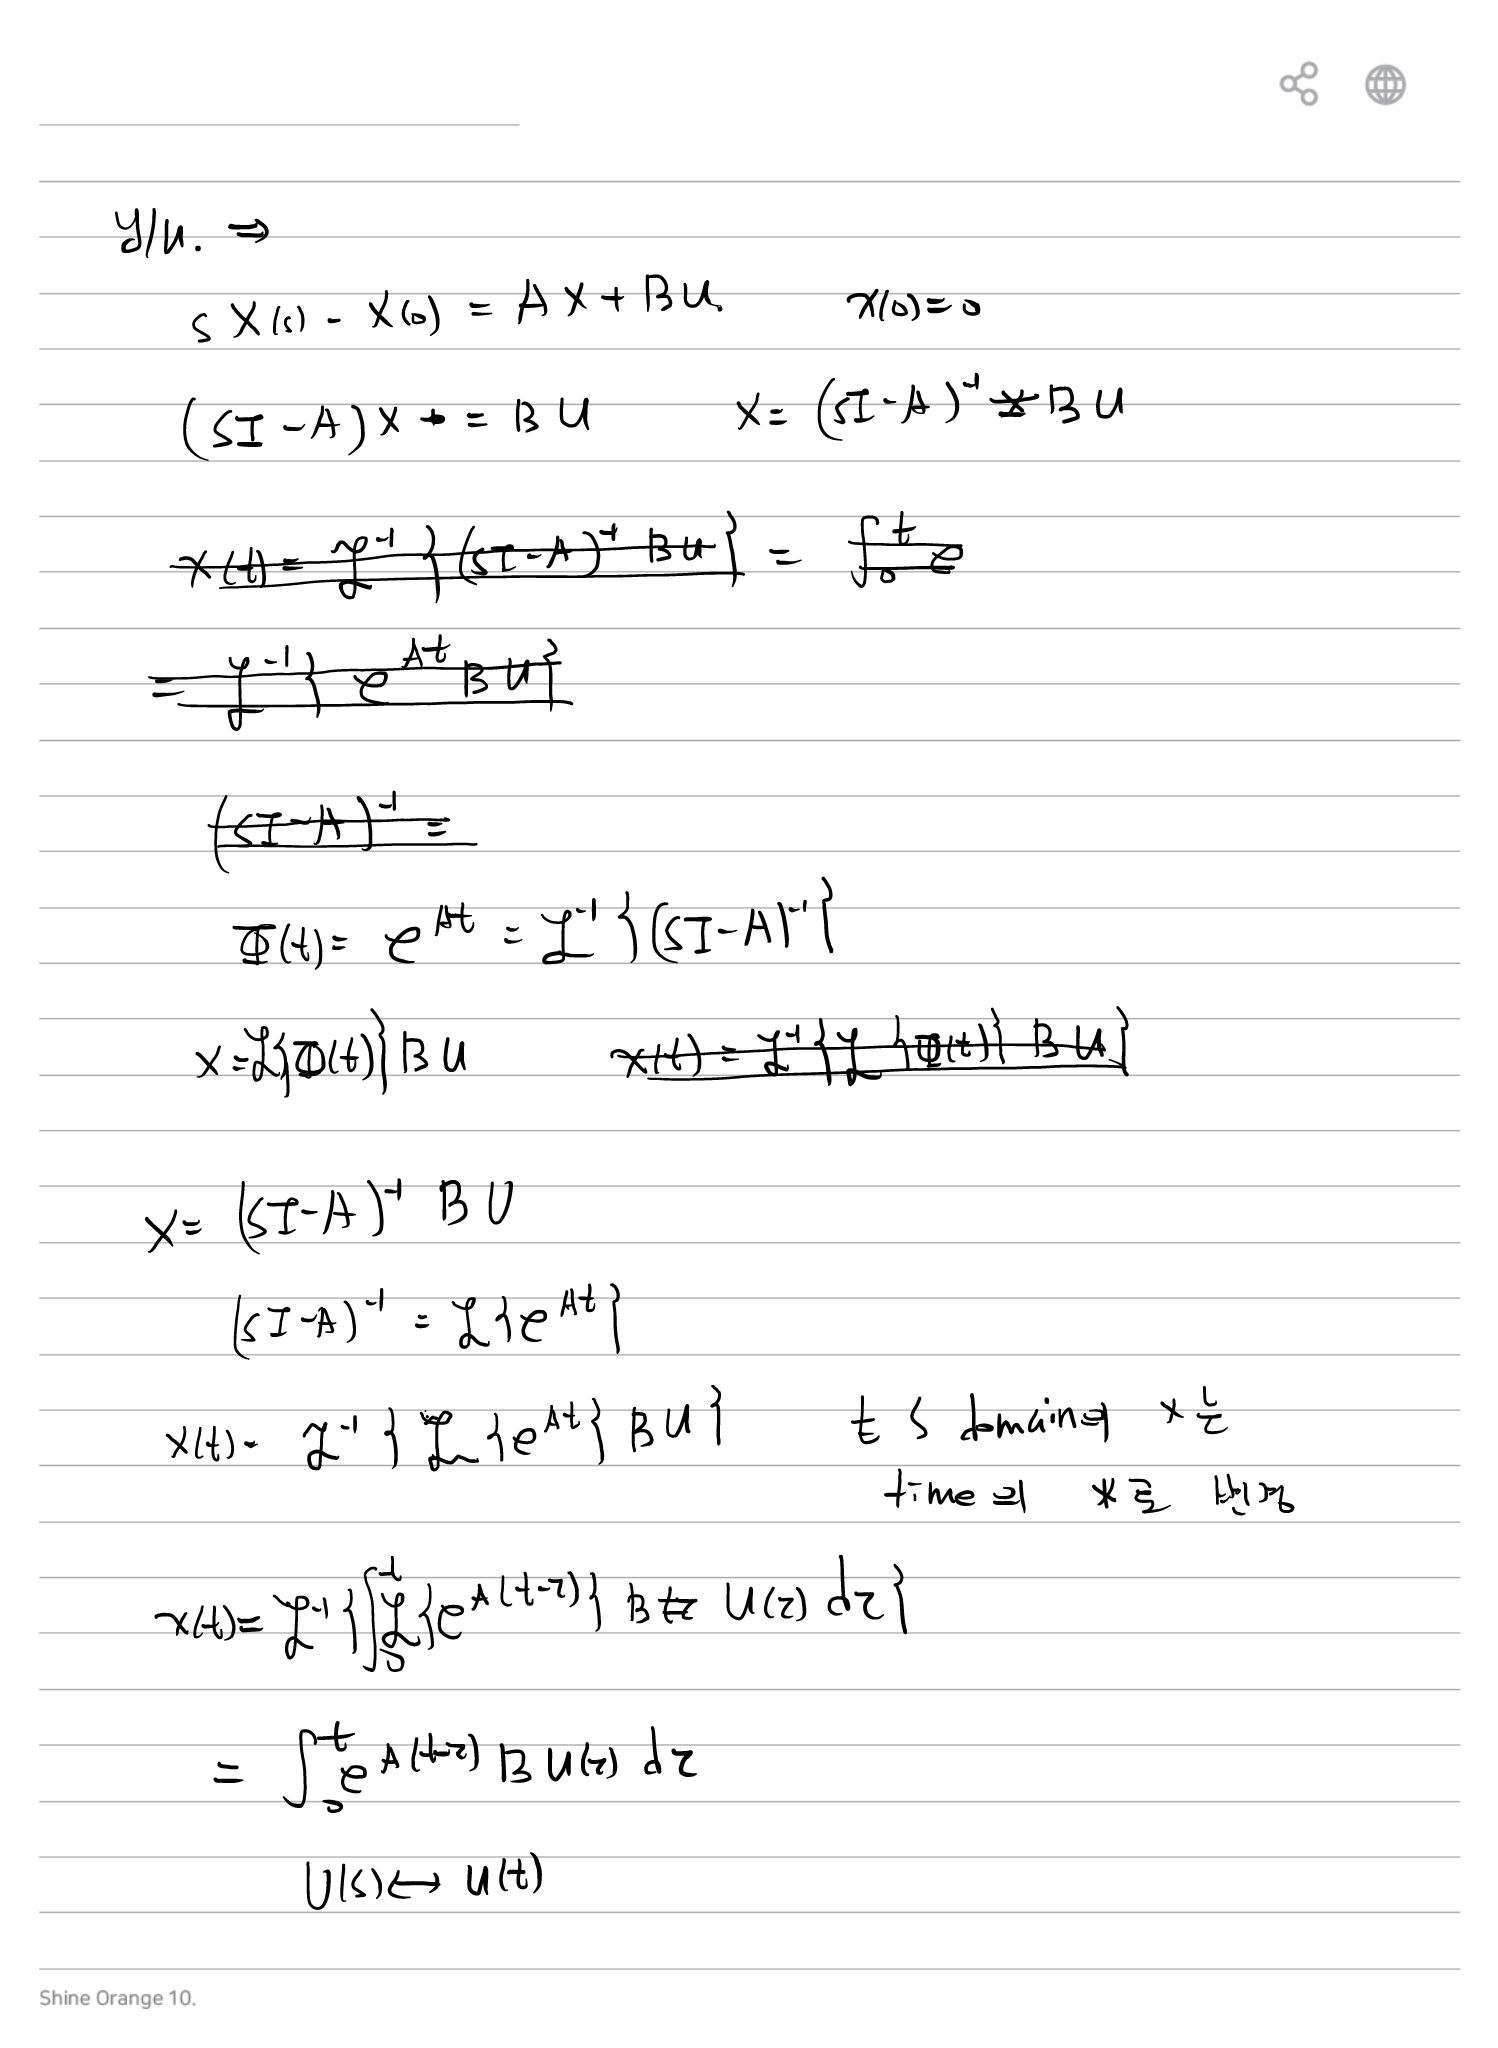 y/u. ⇒
s X(s) - X(0) = AX + BU x(0)=0
(SI-A)X = BU X = (SI-A)⁻¹ BU
x(t) = ℒ⁻¹{(SI-A)⁻¹ BU} = ∫₀ᵗ e
= ℒ⁻¹{e^At BU}
(SI-A)⁻¹ =
Φ(t) = e^At = ℒ⁻¹{(SI-A)⁻¹}
X = ℒ{Φ(t)} BU x(t) = ℒ⁻¹{ℒ{Φ(t)} BU}
X = (SI-A)⁻¹ BU
(SI-A)⁻¹ = ℒ{e^At}
x(t) = ℒ⁻¹{ℒ{e^At} BU} t s domain의 x는
time의 *로 변경
x(t) = ℒ⁻¹{∫₀ᵗ ℒ{e^A(t-τ)} B U(τ) dτ}
= ∫₀ᵗ e^A(t-τ) B U(τ) dτ
U(s) ↔ u(t)
Shine Orange 10.